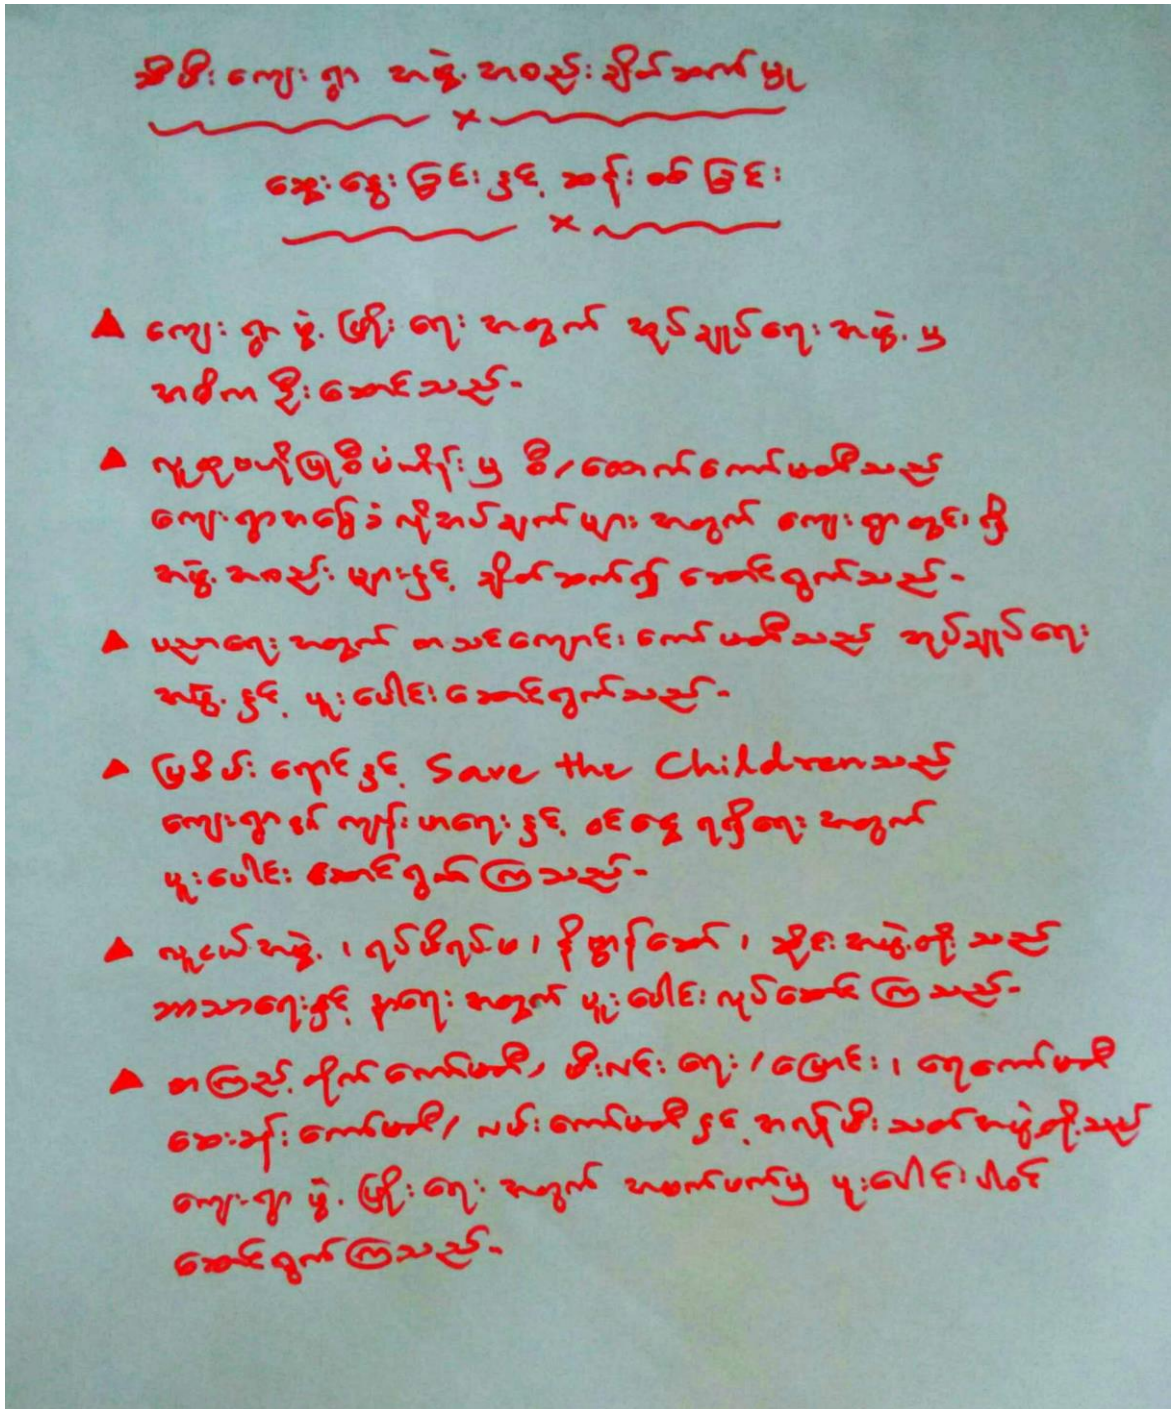 သီဖီး ကျေး ရွာ အဖွဲ့ အစည်း ချိတ်ဆက် မှု
ဆွေး နွေး ခြင်း နှင့် ဆန်း စစ် ခြင်း
ကျေး ရွာ ဖွံ့ ဖြိုး ရေး အတွက် အုပ်ချုပ်ရေး အဖွဲ့ မှ
အဓိက ဦးဆောင်သည်-
လူထုဗဟိုပြုစီမံကိန်း မှ စီ/ထောက်ကော်မတီသည်
ကျေးရွာအခြေခံ လိုအပ်ချက် များ အတွက် ကျေးရွာတွင်းရှိ
အဖွဲ့ အစည်း များနှင့် ချိတ်ဆက်၍ ဆောင်ရွက်သည်-
ပညာရေး အတွက် စာသင်ကျောင်း ကော်မတီသည် အုပ်ချုပ်ရေး
အဖွဲ့ နှင့် ပူးပေါင်း ဆောင်ရွက်သည်-
မြစိမ်း ရောင် နှင့် Save the Children သည်
ကျေးရွာ ၏ ကျန်းမာရေး နှင့် ဝင်ငွေ ရရှိရေး အတွက်
ပူးပေါင်း ဆောင်ရွက် ကြသည်-
လူငယ်အဖွဲ့ ၊ ရပ်မိရပ်ဖ ၊ နိဗ္ဗာန်ဆော် ၊ ဆိုင်းအဖွဲ့တို့ သည်
ဘာသာရေးနှင့် နာရေး အတွက် ပူးပေါင်း လုပ်ဆောင် ကြသည်-
စာကြည့်တိုက် ကော်မတီ၊ မီးလင်း ရေး /မြောင်း ၊ ရေကော်မတီ
ဆေးခန်း ကော်မတီ၊ လမ်းကော်မတီ နှင့် အရန်မီး သတ်အဖွဲ့တို့သည်
ကျေးရွာ ဖွံ့ ဖြိုး ရေး အတွက် အဖက်ဖက်မှ ပူးပေါင်းပါဝင်
ဆောင်ရွက်ကြသည်-